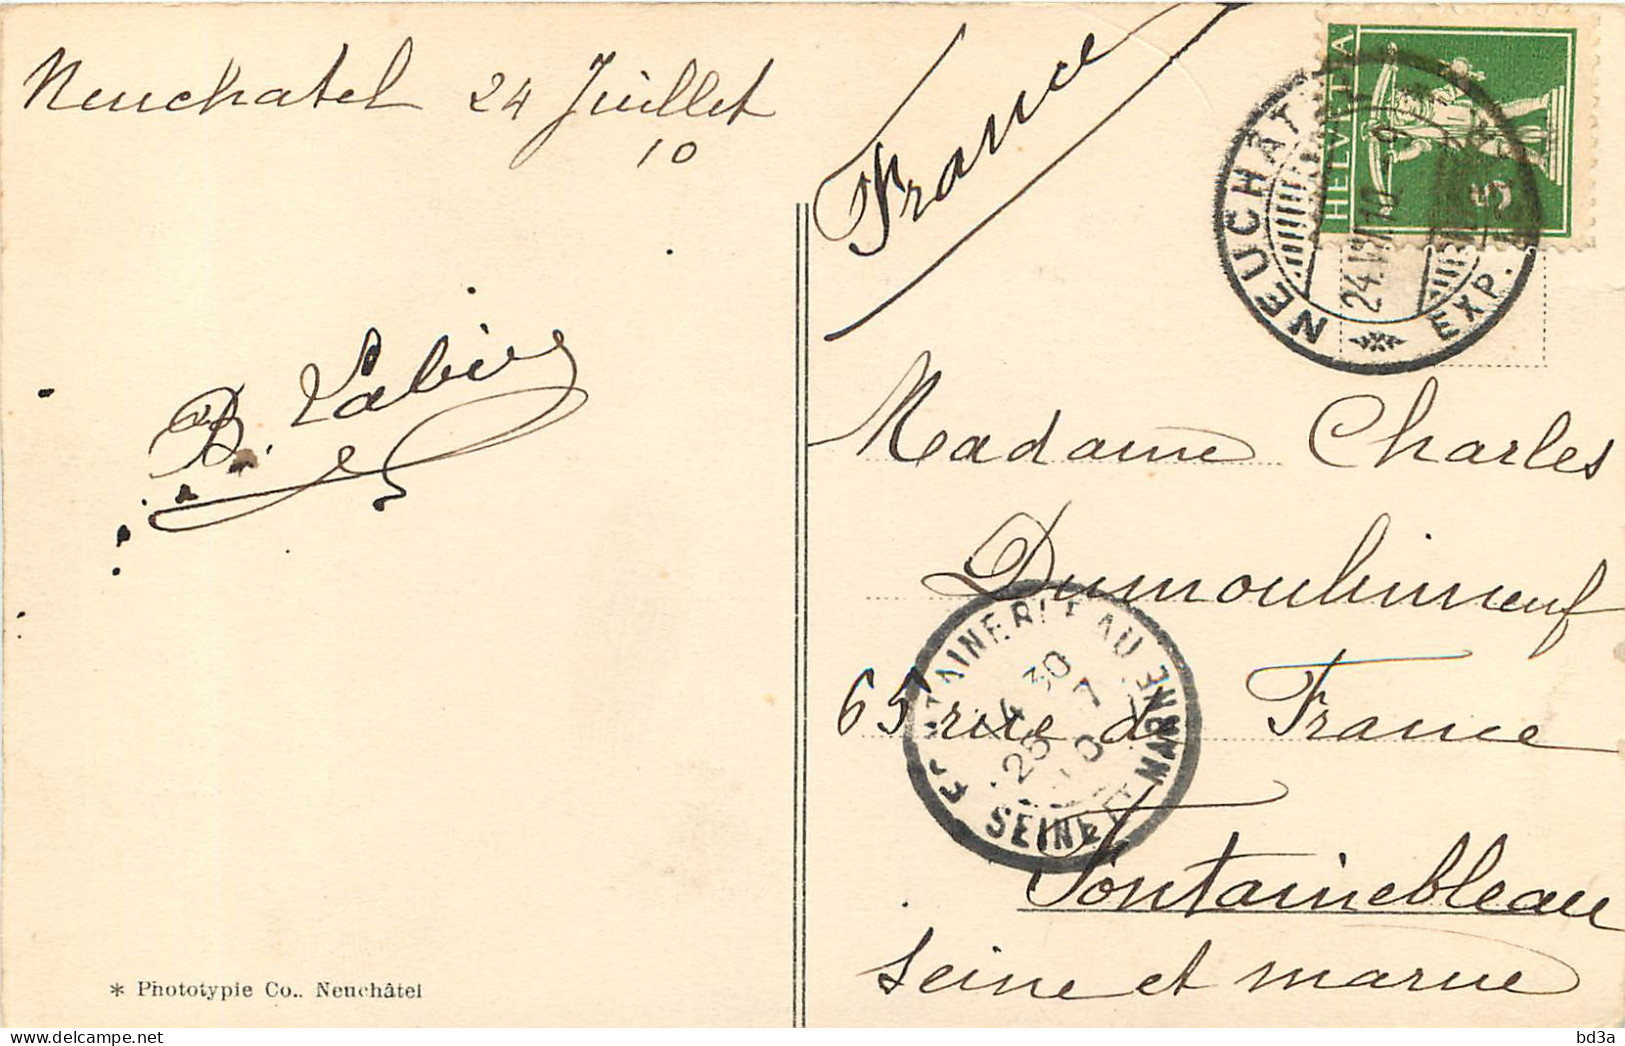 Neuchatel 24 Juillet
10
France
HELVETIA
5
NEUCHÂTEL
EXP.
24.VII.10.-9
B.
Madame Charles
Dumoulinneuf
65 rue de France
Fontainebleau
Seine et marne
FONTAINEBLEAU
14 30
25 7
10
SEINE ET MARNE
* Phototypie Co.. Neuchâtel
bd3a